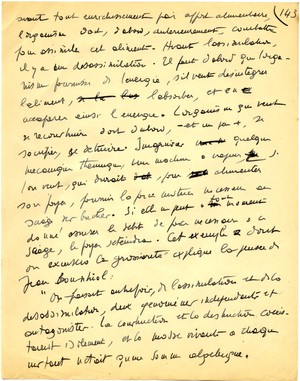 143
avant tout enrichissement par apport alimentaire,
l'organisme doit, d'abord, antérieurement, combattre
pour assimiler cet aliment. Avant l'assimilation,
il y a une désassimilation. Il faut d'abord que l'orga-
nisme fournisse de l'énergie, s'il veut désintégrer
l'aliment, l'absorber, et en
accaparer ainsi l'énergie. L'organisme qui veut
se reconstruire doit d'abord, et un peu, se
sacrifier, se détruire. Imaginons quelque
mécanique thermique, une machine à vapeur, si
l'on veut, qui devrait, pour alimenter
son foyer, fournir la force motrice nécessaire au
du bûcher. Si elle ne peut à un moment
donné assurer le débit de force nécessaire au
sciage, le foyer s'éteindra. Cet exemple dont
on excusera la grossièreté explique la pensée de
Jean Bounhiol :
"On faisait autrefois, de l'assimilation et de la
désassimilation, deux phénomènes indépendants et
antagonistes. La construction et la destruction coexis-
taient isolément, et la matière vivante à chaque
instant n'était qu'une somme algébrique.